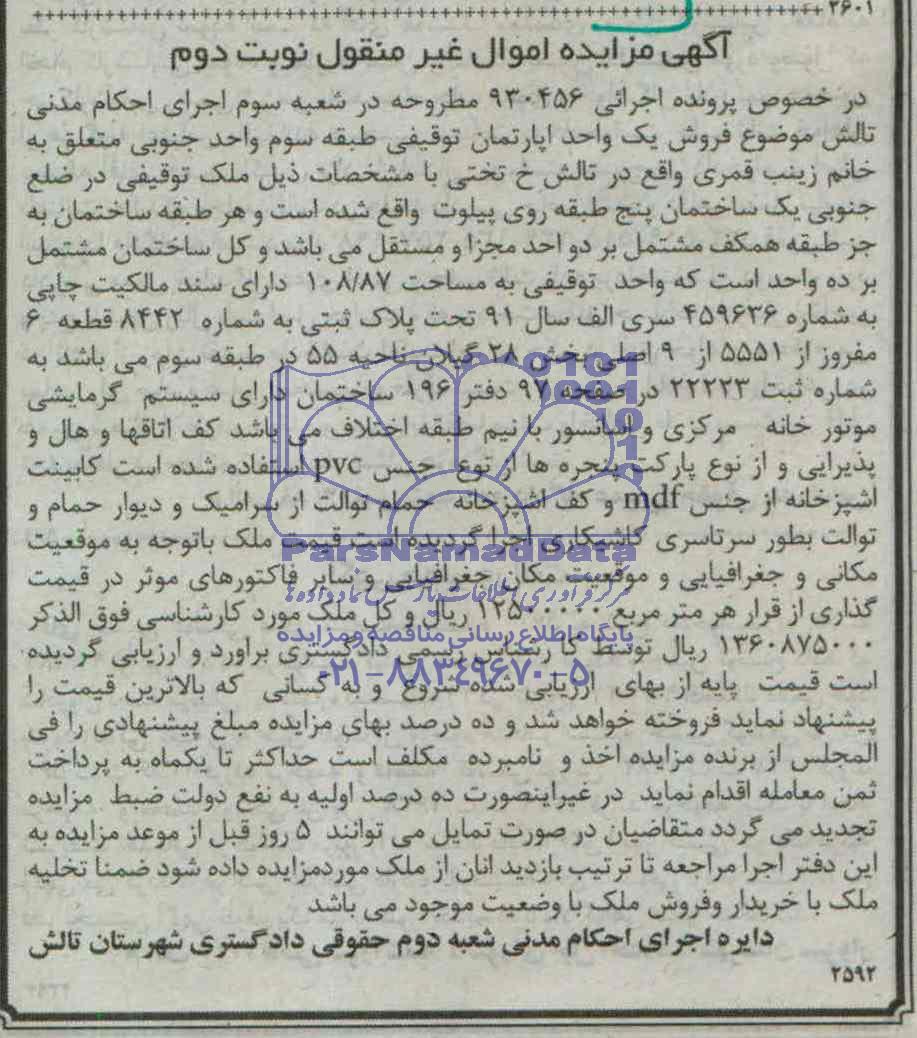 ۲۶۰۱
آگهی مزایده اموال غیر منقول نوبت دوم
در خصوص پرونده اجرائی ۹۳۰۴۵۶ مطروحه در شعبه سوم اجرای احکام مدنی
تالش موضوع فروش یک واحد اپارتمان توقیفی طبقه سوم واحد جنوبی متعلق به
خانم زینب قمری واقع در تالش خ تختی با مشخصات ذیل ملک توقیفی در ضلع
جنوبی یک ساختمان پنج طبقه روی پیلوت واقع شده است و هر طبقه ساختمان به
جز طبقه همکف مشتمل بر دو احد مجزا و مستقل می باشد و کل ساختمان مشتمل
بر ده واحد است که واحد توقیفی به مساحت ۱۰۸/۸۷ دارای سند مالکیت چاپی
به شماره ۴۵۹۶۳۶ سری الف سال ۹۱ تحت پلاک ثبتی به شماره ۸۴۴۲ قطعه ۶
مفروز از ۵۵۵۱ از ۹ اصلی بخش ۲۸ گیلان ناحیه ۵۵ در طبقه سوم می باشد به
شماره ثبت ۲۲۲۲۳ در صفحه ۹۷ دفتر ۱۹۶ ساختمان دارای سیستم گرمایشی
موتور خانه مرکزی و اسانسور با نیم طبقه اختلاف می باشد کف اتاقها و هال و
پذیرایی و از نوع پارکت پنجره ها از نوع جنس pvc استفاده شده است کابینت
اشپزخانه از جنس mdf و کف اشپزخانه حمام توالت از سرامیک و دیوار حمام و
توالت بطور سرتاسری کاشیکاری اجرا گردیده است قیمت ملک باتوجه به موقعیت
ParsNamadData
مکانی و جغرافیایی و موقعیت مکان جغرافیایی و سایر فاکتورهای موثر در قیمت
گذاری از قرار هر متر مربع ۱۲۵۰۰۰۰۰ ریال و کل ملک مورد کارشناسی فوق الذکر
پایگاه اطلاع رسانی مناقصه و مزایده
۱۳۶۰۸۷۵۰۰۰ ریال توسط کا رشناس رسمی دادگستری براورد و ارزیابی گردیده
۰۲۱-۸۸۳۴۹۶۷۰-۵
است قیمت پایه از بهای ارزیابی شده شروع و به کسانی که بالاترین قیمت را
پیشنهاد نماید فروخته خواهد شد و ده درصد بهای مزایده مبلغ پیشنهادی را فی
المجلس از برنده مزایده اخذ و نامبرده مکلف است حداکثر تا یکماه به پرداخت
ثمن معامله اقدام نماید در غیراینصورت ده درصد اولیه به نفع دولت ضبط مزایده
تجدید می گردد متقاضیان در صورت تمایل می توانند ۵ روز قبل از موعد مزایده به
این دفتر اجرا مراجعه تا ترتیب بازدید انان از ملک موردمزایده داده شود ضمنا تخلیه
ملک با خریدار وفروش ملک با وضعیت موجود می باشد
دایره اجرای احکام مدنی شعبه دوم حقوقی دادگستری شهرستان تالش
۲۵۹۲